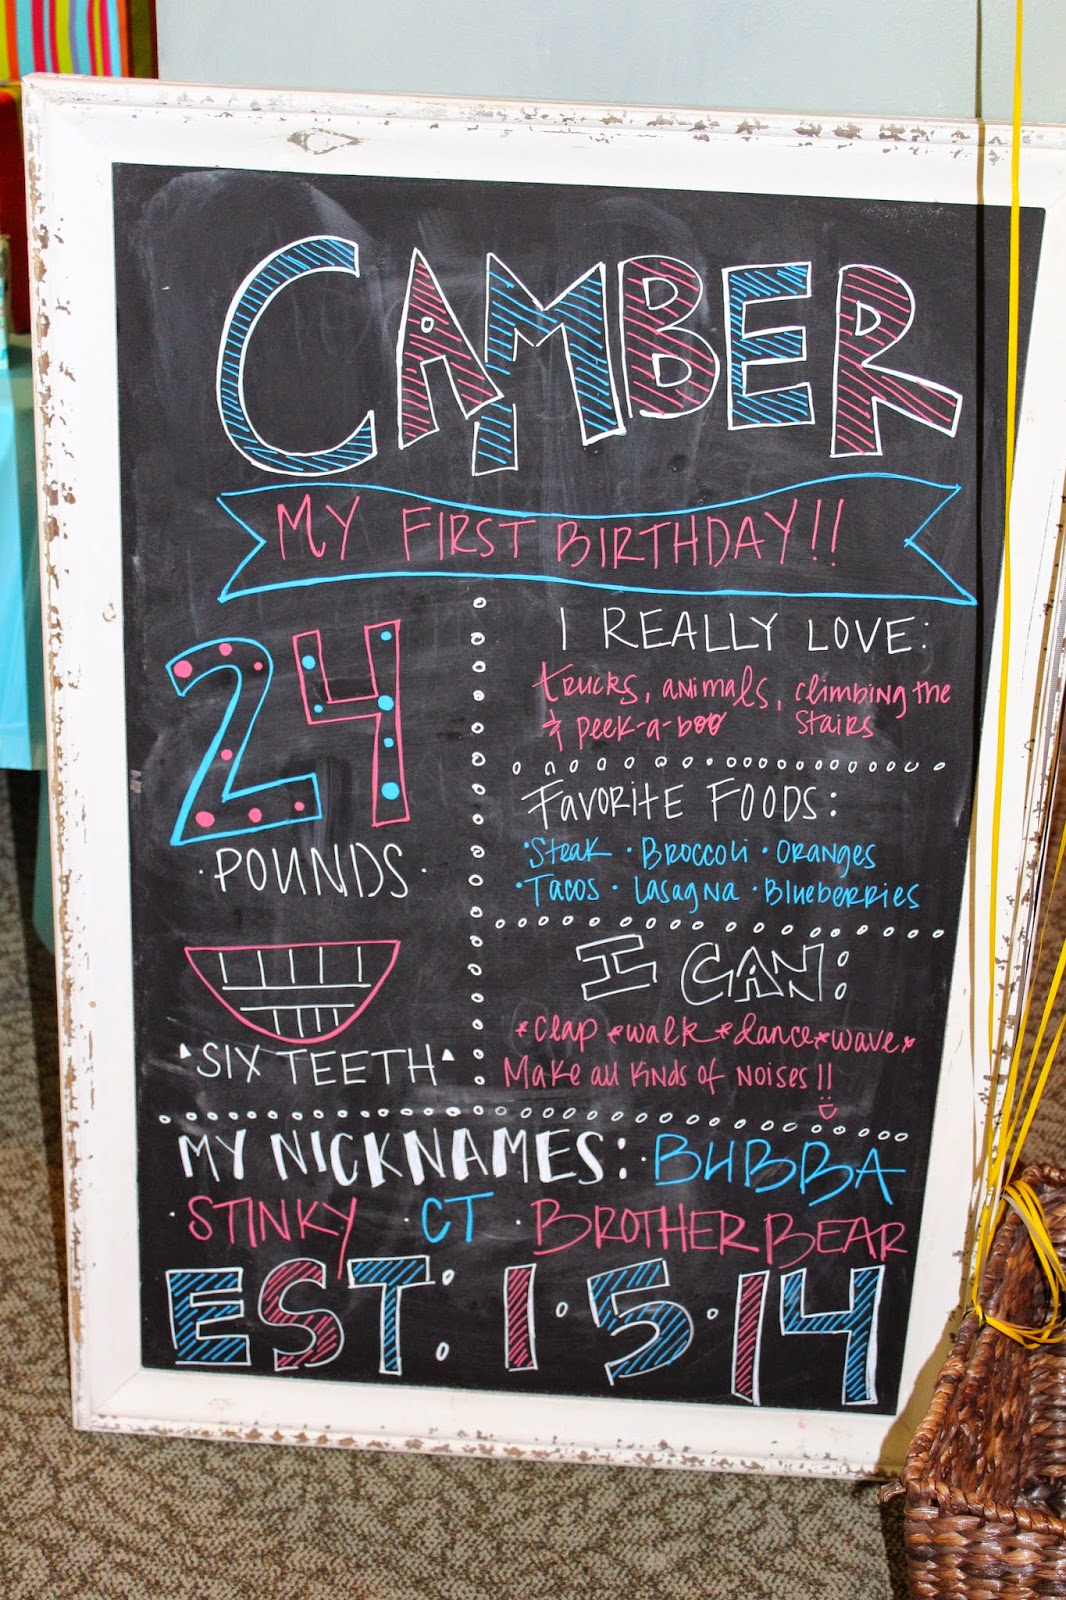 CAMBER
MY FIRST BIRTHDAY!!
24
·POUNDS·
SIX TEETH
I REALLY LOVE:
trucks, animals, climbing the
& peek-a-boo stairs
FAVORITE FOODS:
·Steak ·Broccoli ·Oranges
·Tacos ·Lasagna ·Blueberries
I CAN:
*clap *walk *dance*wave*
Make all kinds of noises!!
MY NICKNAMES: ·BUBBA
·STINKY ·CT ·BROTHER BEAR
EST: 1·5·14